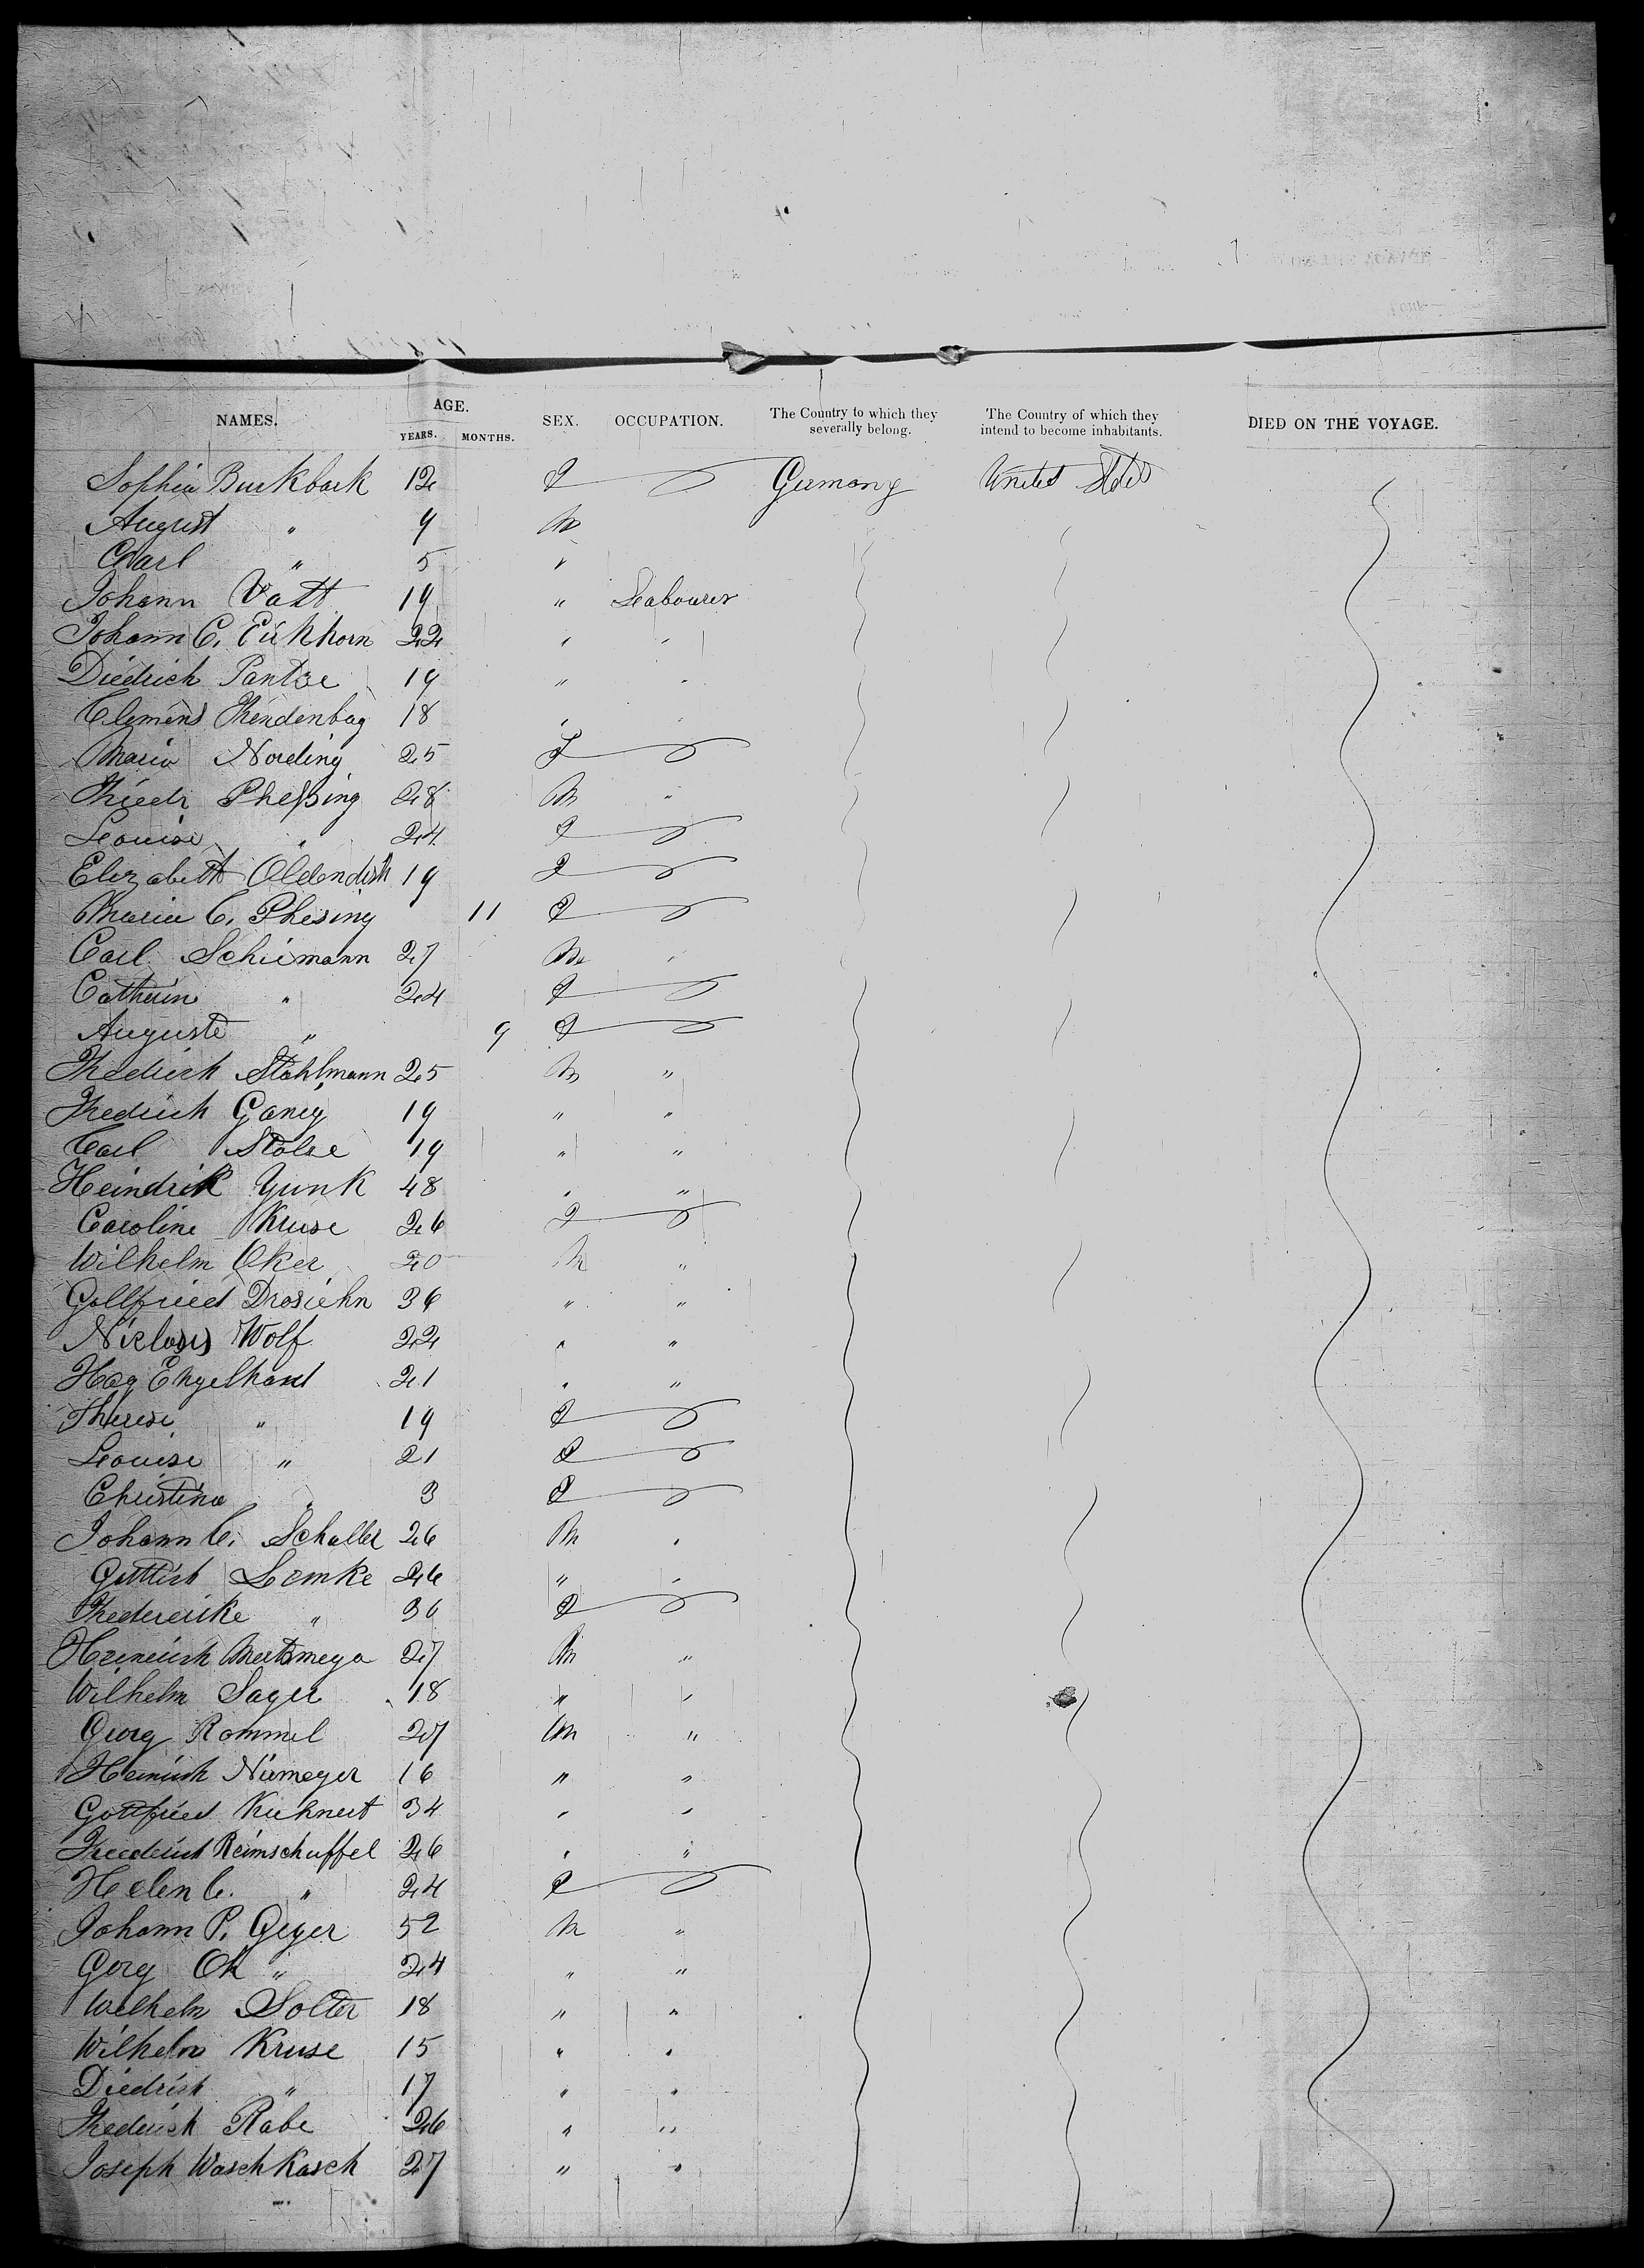 NAMES. AGE. YEARS. MONTHS. SEX. OCCUPATION. The Country to which they severally belong. The Country of which they intend to become inhabitants. DIED ON THE VOYAGE.
Sophia Burkbark 12 F Germany United States
August " 9 M
Charl " 5 "
Johann Vatt 19 " Seabourer
Johann C. Eickhorn 22 " "
Diedrich Pantze 19 " "
Clemens Khendenbag 18 " "
Maria Nording 25 F
Friedr Pheßing 28 M "
Louise " 24 F
Elizabett Oldendish 19 F
Maria C. Phesing 11 F
Carl Schiemann 27 M "
Cathrin " 24 F
Auguste " 9 F
Fredrich Stahlmann 25 M "
Fredrich Ganey 19 " "
Carl Stolse 19 " "
Heindrik Yunk 48 " "
Caroline Kruse 26 F
Wilhelm Oker 20 M "
Gottfried Drosiehn 36 " "
Niclaus Wolf 22 " "
Hag Engelhard 21 " "
Therese " 19 F
Louise " 21 F
Christina " 3 F
Johann C. Schaller 26 M "
Gottlieb Lemke 26 " "
Frederike " 30 F
Heinrich Mertsmeya 27 M "
Wilhelm Sager 18 " "
Georg Rommel 27 M "
Heinrich Niemeyer 16 " "
Gottfried Kuhnert 34 " "
Friedrich Reimschuffel 26 " "
Helen C. " 24 F
Johann P. Geyer 52 M "
Gorg Ok " 24 " "
Wilhelm Solter 18 " "
Wilhelm Kruse 15 " "
Diedrich " 17 " "
Fredrich Rabe 26 " "
Joseph Waschkasch 27 " "